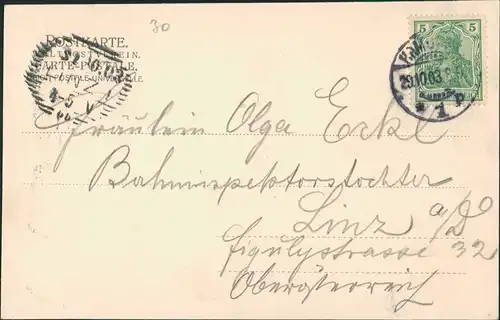 30
POSTKARTE.
WELTPOSTVEREIN.
CARTE POSTALE.
UNION POSTALE UNIVERSELLE.
5 5
29.10.03
* 1 P.
4-5
Fräulein Olga Eckl
Bahninspektorstochter
Linz a/D
Figulystrasse 32
Oberösterreich